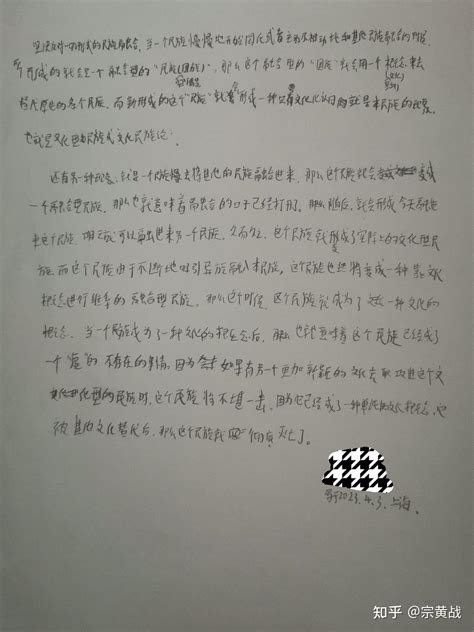 坚决反对一切形式的民族融合，当一个民族慢慢地开始同化或者主动和其他民族融合的时候，
形成的就会是一个融合型的“民族(国族)”，那么这个融合里的“国族”就会用一个概念来去
替代原也的各个民族。而新形成的这个“民族”就会形成一种只有文化认同就是本民族的现象，
也就是文化型民族或文化民族论。
还有另一种现象：就是一个民族慢慢将其他的民族融合进来，那么这个民族就会变成
一个融合型民族，那么也就意味着融合的口子已经打开了。那么随后，就会形成今天融合
进这个民族，明天就可以融进来另一个民族。久而久之，这个民族就形成了实际上的文化型民
族。而这个民族由于不断地吸引异族融入本民族，这个民族也必将变成一种靠文化
概念进行维系的融合型民族。那么这个时候，这个民族就成为了这一种文化的
概念。当一个民族成为了一种文化的概念之后，那么也就意味着这个民族已经成了
一个“虚”的、不存在的事情，因为如果有另一个更加新颖的文化去取攻进这个文
化型的民族时，这个民族将不堪一击，因为它已经成了一种单纯的文化概念，也
被其他文化替代后，那么这个民族就彻底灭亡了。
写于2023.4.3.上海。
知乎 @宗黄战